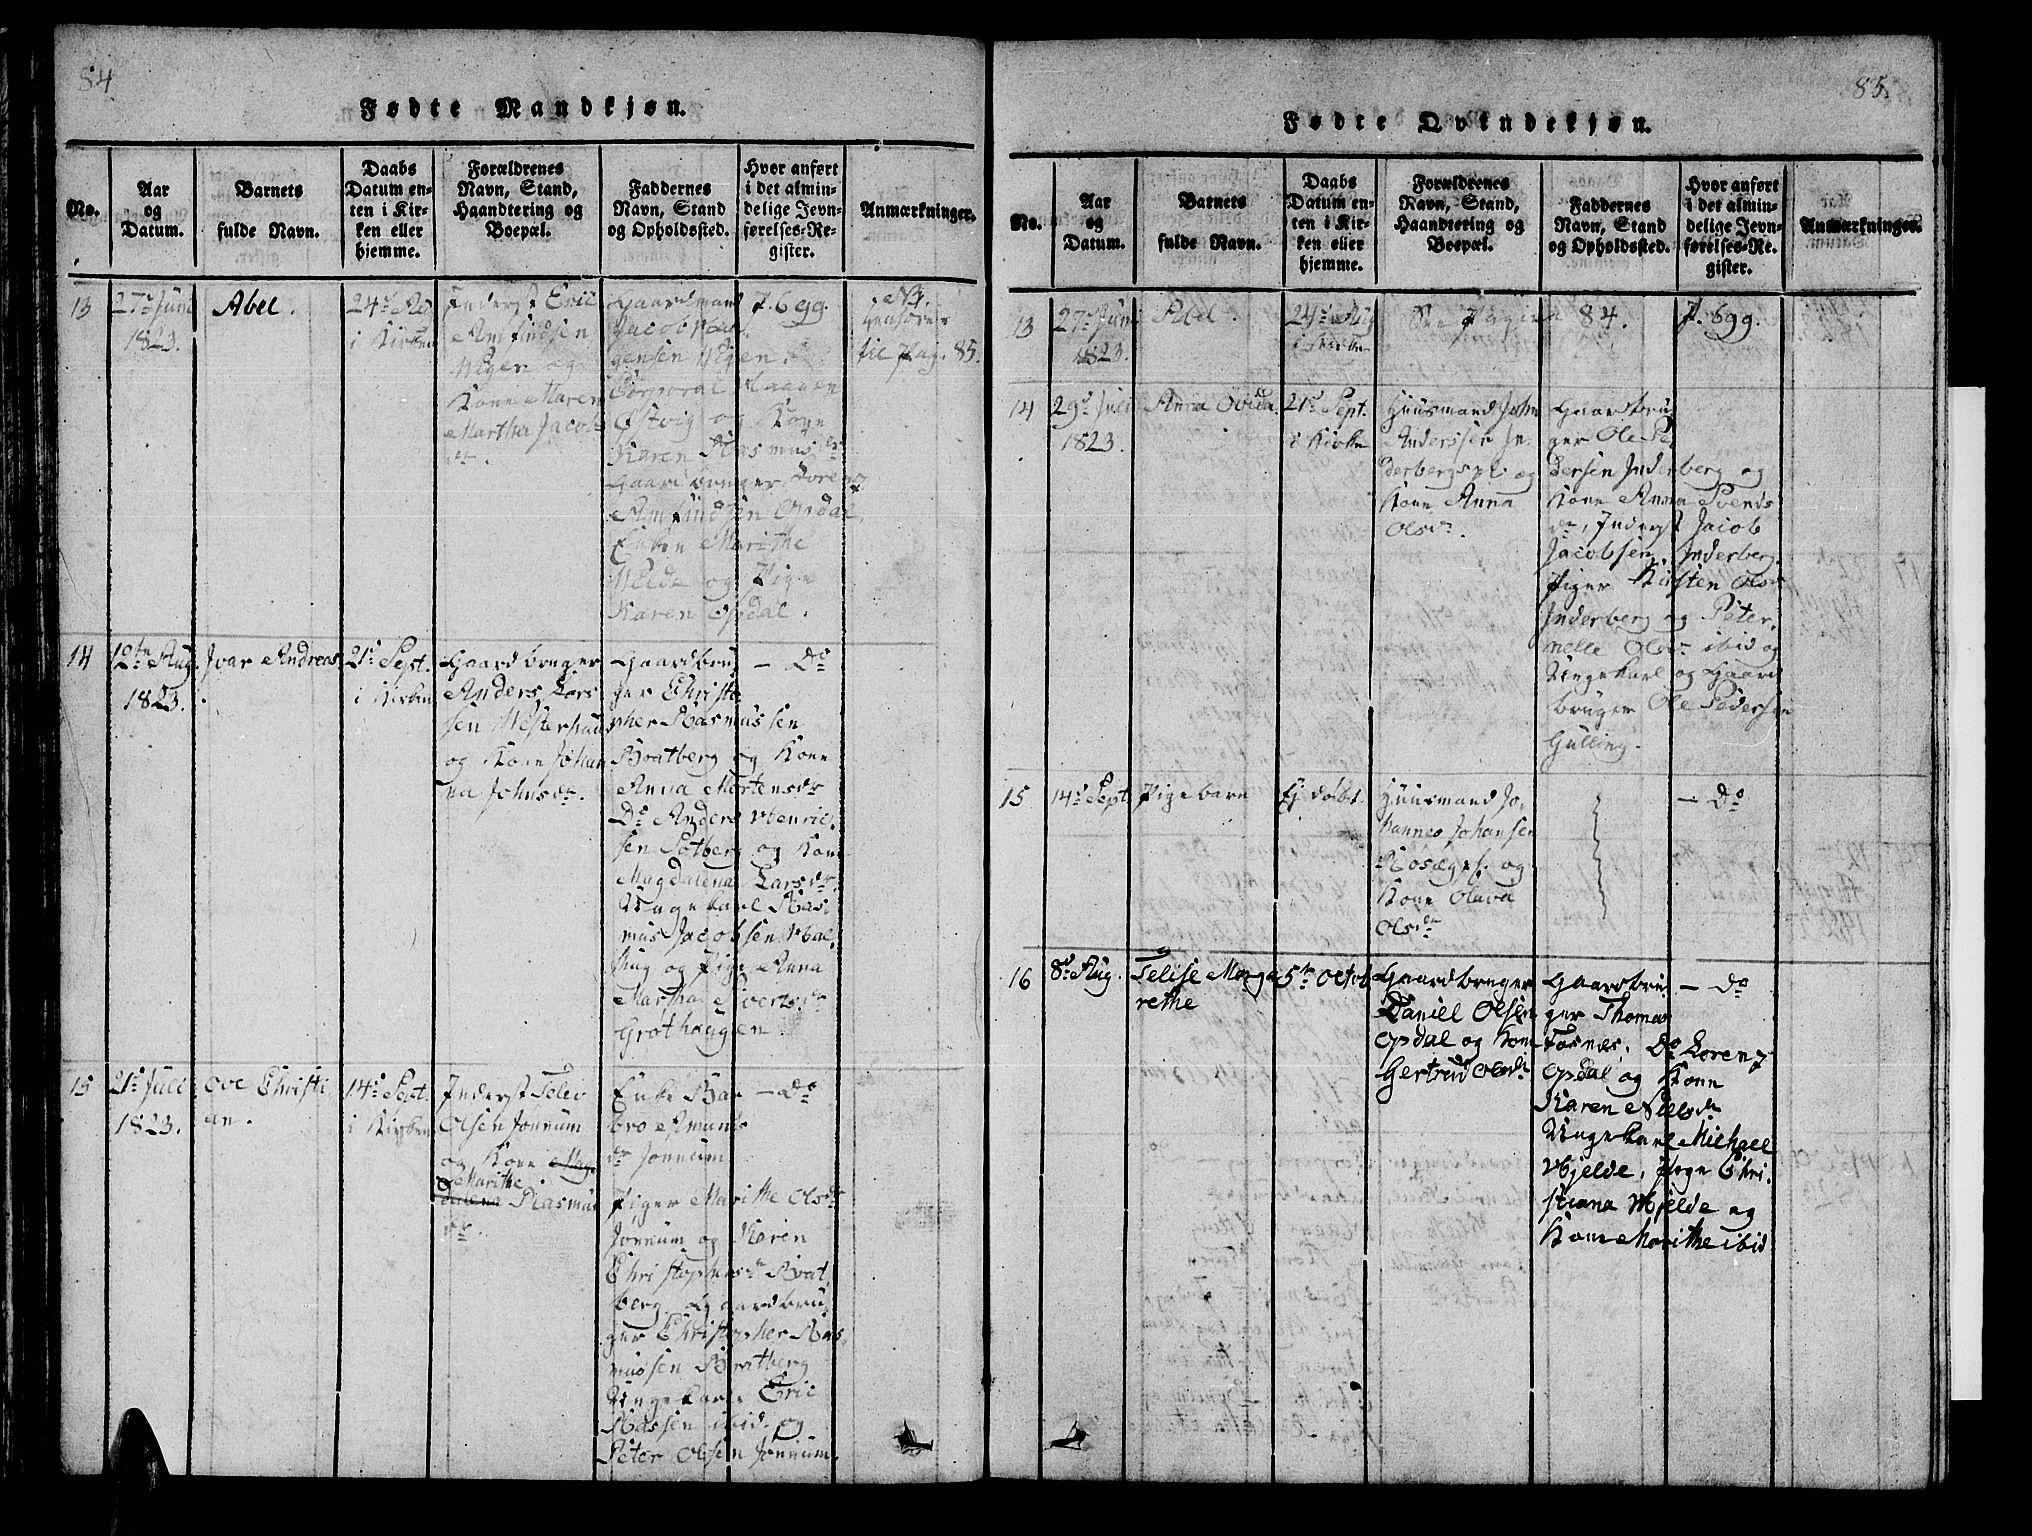 84
Fødte Mandkjøn.
No.
Aar
og
Datum.
Barnets
fulde Navn.
Daabs
Datum en-
ten i Kir-
ken eller
hjemme.
Forældrenes
Navn, Stand,
Haandtering og
Boepæl.
Faddernes
Navn, Stand
og Opholdssted.
Hvor anført
i det almin-
delige Jevn-
førelses-Re-
gister.
Anmærkninger.
13
27de Juni
1823.
Abel.
24de Au
i Kirken
Inderst Eric
Amfindsen
Wigen og
Kone Maren
Martha Jacob
dr.
Gaardmand
Jacob
gensen Wigen.
Corporal Haagen
Østvig og Kone
Karen Rasmusdr
Gaardbruger Lorenz
Amfindsen Opdal,
Enken Marithe
og Pige
Karen Opdal.
P. 699.
NB.
henføres
til Pag. 85.
14
12te Aug.
1823.
Ivar Andreas
21de Sept.
i Kirken
Gaardbruger
Anders Lars
sen Westerhaug
og Kone Johan
na Johnsdr.
Gaardbru
ger Christo
pher Rasmussen
Bratberg og Kone
Anna Mortensdr
Do Anders Henric
sen Solberg og Kone
Magdalena Larsdr.
Ungekarl Ras
mus Jacobsen Hal
hug og Pige Anna
Martha Sivertsdr
Grothaugen.
— Do
15
21de Juli
1823.
Ove Christi
an.
14de Sept.
i Kirken
Inderst Peler
Olsen Jonnum
og Kone Mag
Marithe
dalena Rasmus
dr.
Enke Bar
bro Amunds
dr Jonnum
Piger Marithe Olsdr
Jonnum og Karen
Christophersdr Brat
berg. Gaardbru
ger Christopher Ras
mussen Bratberg
Ungekarl Eric
Hassen ibid. og
Peter Olsen Jonnum.
— Do
85.
Fødte Qvindekjøn.
No.
Aar
og
Datum.
Barnets
fulde Navn.
Daabs
Datum en-
ten i Kir-
ken eller
hjemme.
Forældrenes
Navn, Stand,
Haandtering og
Boepæl.
Faddernes
Navn, Stand
og Opholdssted.
Hvor anført
i det almin-
delige Jevn-
førelses-Re-
gister.
Anmærkninger.
13
27de Juni
1823.
Abel.
24de Aug
i Kirke
See Pagina 84.
P. 699.
14
29de Juli
1823.
Anna Ovida
21de Sept.
i Kirke
Huusmand John
Anderssen In
derbergs pl. og
Kone Anna
Olsdr.
Gaardbru
ger Ole Pe
dersen Inderberg og
Kone Anna Svends
dr, Inderst Jacob
Jacobsen Inderberg
Piger Kirsten Olsdr
Inderberg og Peter
nelle Olsdr. ibid og
Ungekarl og Gaard
bruger Ole Pedersen
Gulling.
15
14de Sept.
Pigebarn
Ej døbt.
Huusmand Jo
hannes Johansen
Rosægs pl. og
Kone Olava
Olsdr
— Do
16
8de Aug.
Telise Marga
rethe
5te Octob
Gaardbruger
Daniel Olsen
Opdal og Kone
Gertrud Olsdr
Gaardbru
ger Thomas
Fosnæs, Do Lorenz
Opdal og Kone
Karen Nilsdr
Ungekarl Michael
Hjelde, Pige Chri
stiana Hjelde og
Kone Marithe ibid
— Do